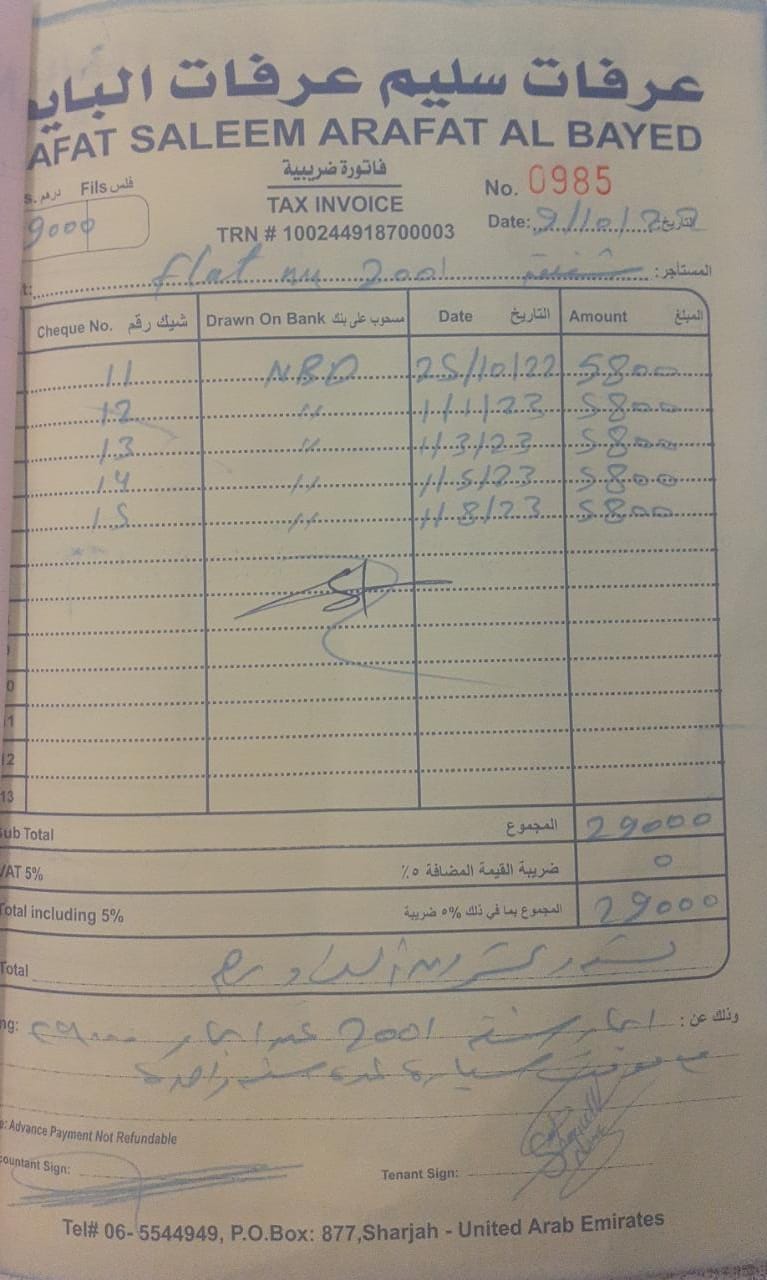 عرفات سليم عرفات الباي
AFAT SALEEM ARAFAT AL BAYED
فاتورة ضريبية
TAX INVOICE
TRN # 100244918700003
s. درهم Fils فلس
9000
No. 0985
Date: 9/10/22 التاريخ
t: flat nu 2001 المستأجر:
Cheque No. شيك رقم Drawn On Bank مسحوب على بنك Date التاريخ Amount المبلغ
11 NBD 25/10/22 5800
12 // 1/1/23 5800
13 // 1/3/23 5800
14 // 1/5/23 5800
15 // 1/8/23 5800
0
11
12
13
ub Total المجموع 29000
VAT 5% ضريبة القيمة المضافة ٥٪ 0
Total including 5% المجموع بما في ذلك %٥ ضريبة 29000
Total
ng: 2001 وذلك عن:
سيارة لمدة سنة واحدة
e: Advance Payment Not Refundable
countant Sign: Tenant Sign:
Tel# 06- 5544949, P.O.Box: 877,Sharjah - United Arab Emirates